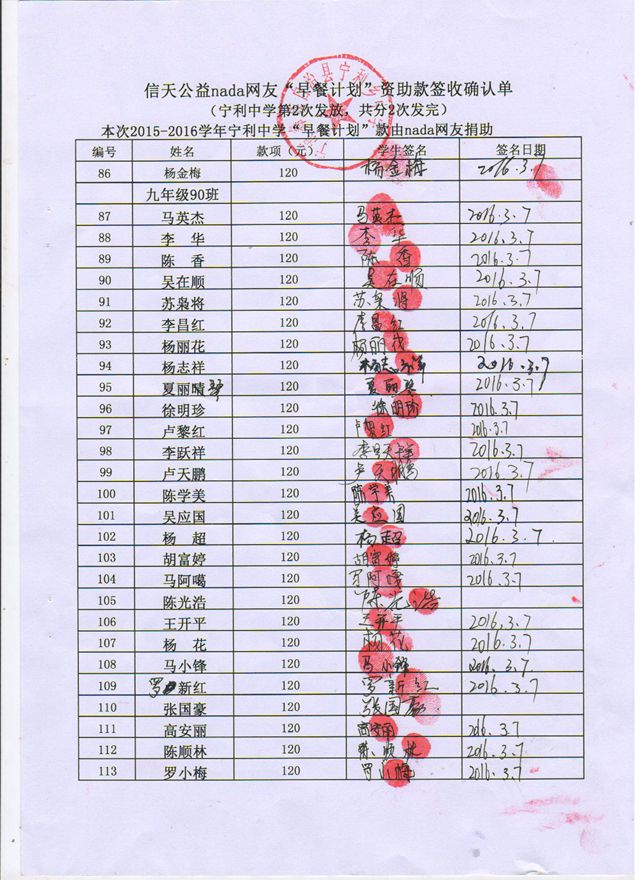 信天公益nada网友“早餐计划”资助款签收确认单
（宁利中学第2次发放，共分2次发完）
本次2015-2016学年宁利中学“早餐计划”款由nada网友捐助
编号 姓名 款项（元） 学生签名 签名日期
86 杨金梅 120 杨金梅 2016.3.7
九年级90班
87 马英杰 120 马英杰 2016.3.7
88 李 华 120 李 华 2016.3.7
89 陈 香 120 陈 香 2016.3.7
90 吴在顺 120 吴在顺 2016.3.7
91 苏枭将 120 苏枭将 2016.3.7
92 李昌红 120 李昌红 2016.3.7
93 杨丽花 120 杨丽花 2016.3.7
94 杨志祥 120 杨志祥 2016.3.7
95 夏丽晴 120 夏丽 2016.3.7
96 徐明珍 120 徐明珍 2016.3.7
97 卢黎红 120 卢黎红 2016.3.7
98 李跃祥 120 李跃祥 2016.3.7
99 卢天鹏 120 卢天鹏 2016.3.7
100 陈学美 120 陈学美 2016.3.7
101 吴应国 120 吴应国 2016.3.7
102 杨 超 120 杨超 2016.3.7
103 胡富婷 120 胡富婷 2016.3.7
104 马阿噶 120 马阿噶 2016.3.7
105 陈光浩 120 陈光浩
106 王开平 120 王开平 2016.3.7
107 杨 花 120 杨花 2016.3.7
108 马小锋 120 马小锋 2016.3.7
109 罗新红 120 罗新红 2016.3.7
110 张国豪 120 张国豪
111 高安丽 120 高安丽 2016.3.7
112 陈顺林 120 陈顺林 2016.3.7
113 罗小梅 120 罗小梅 2016.3.7